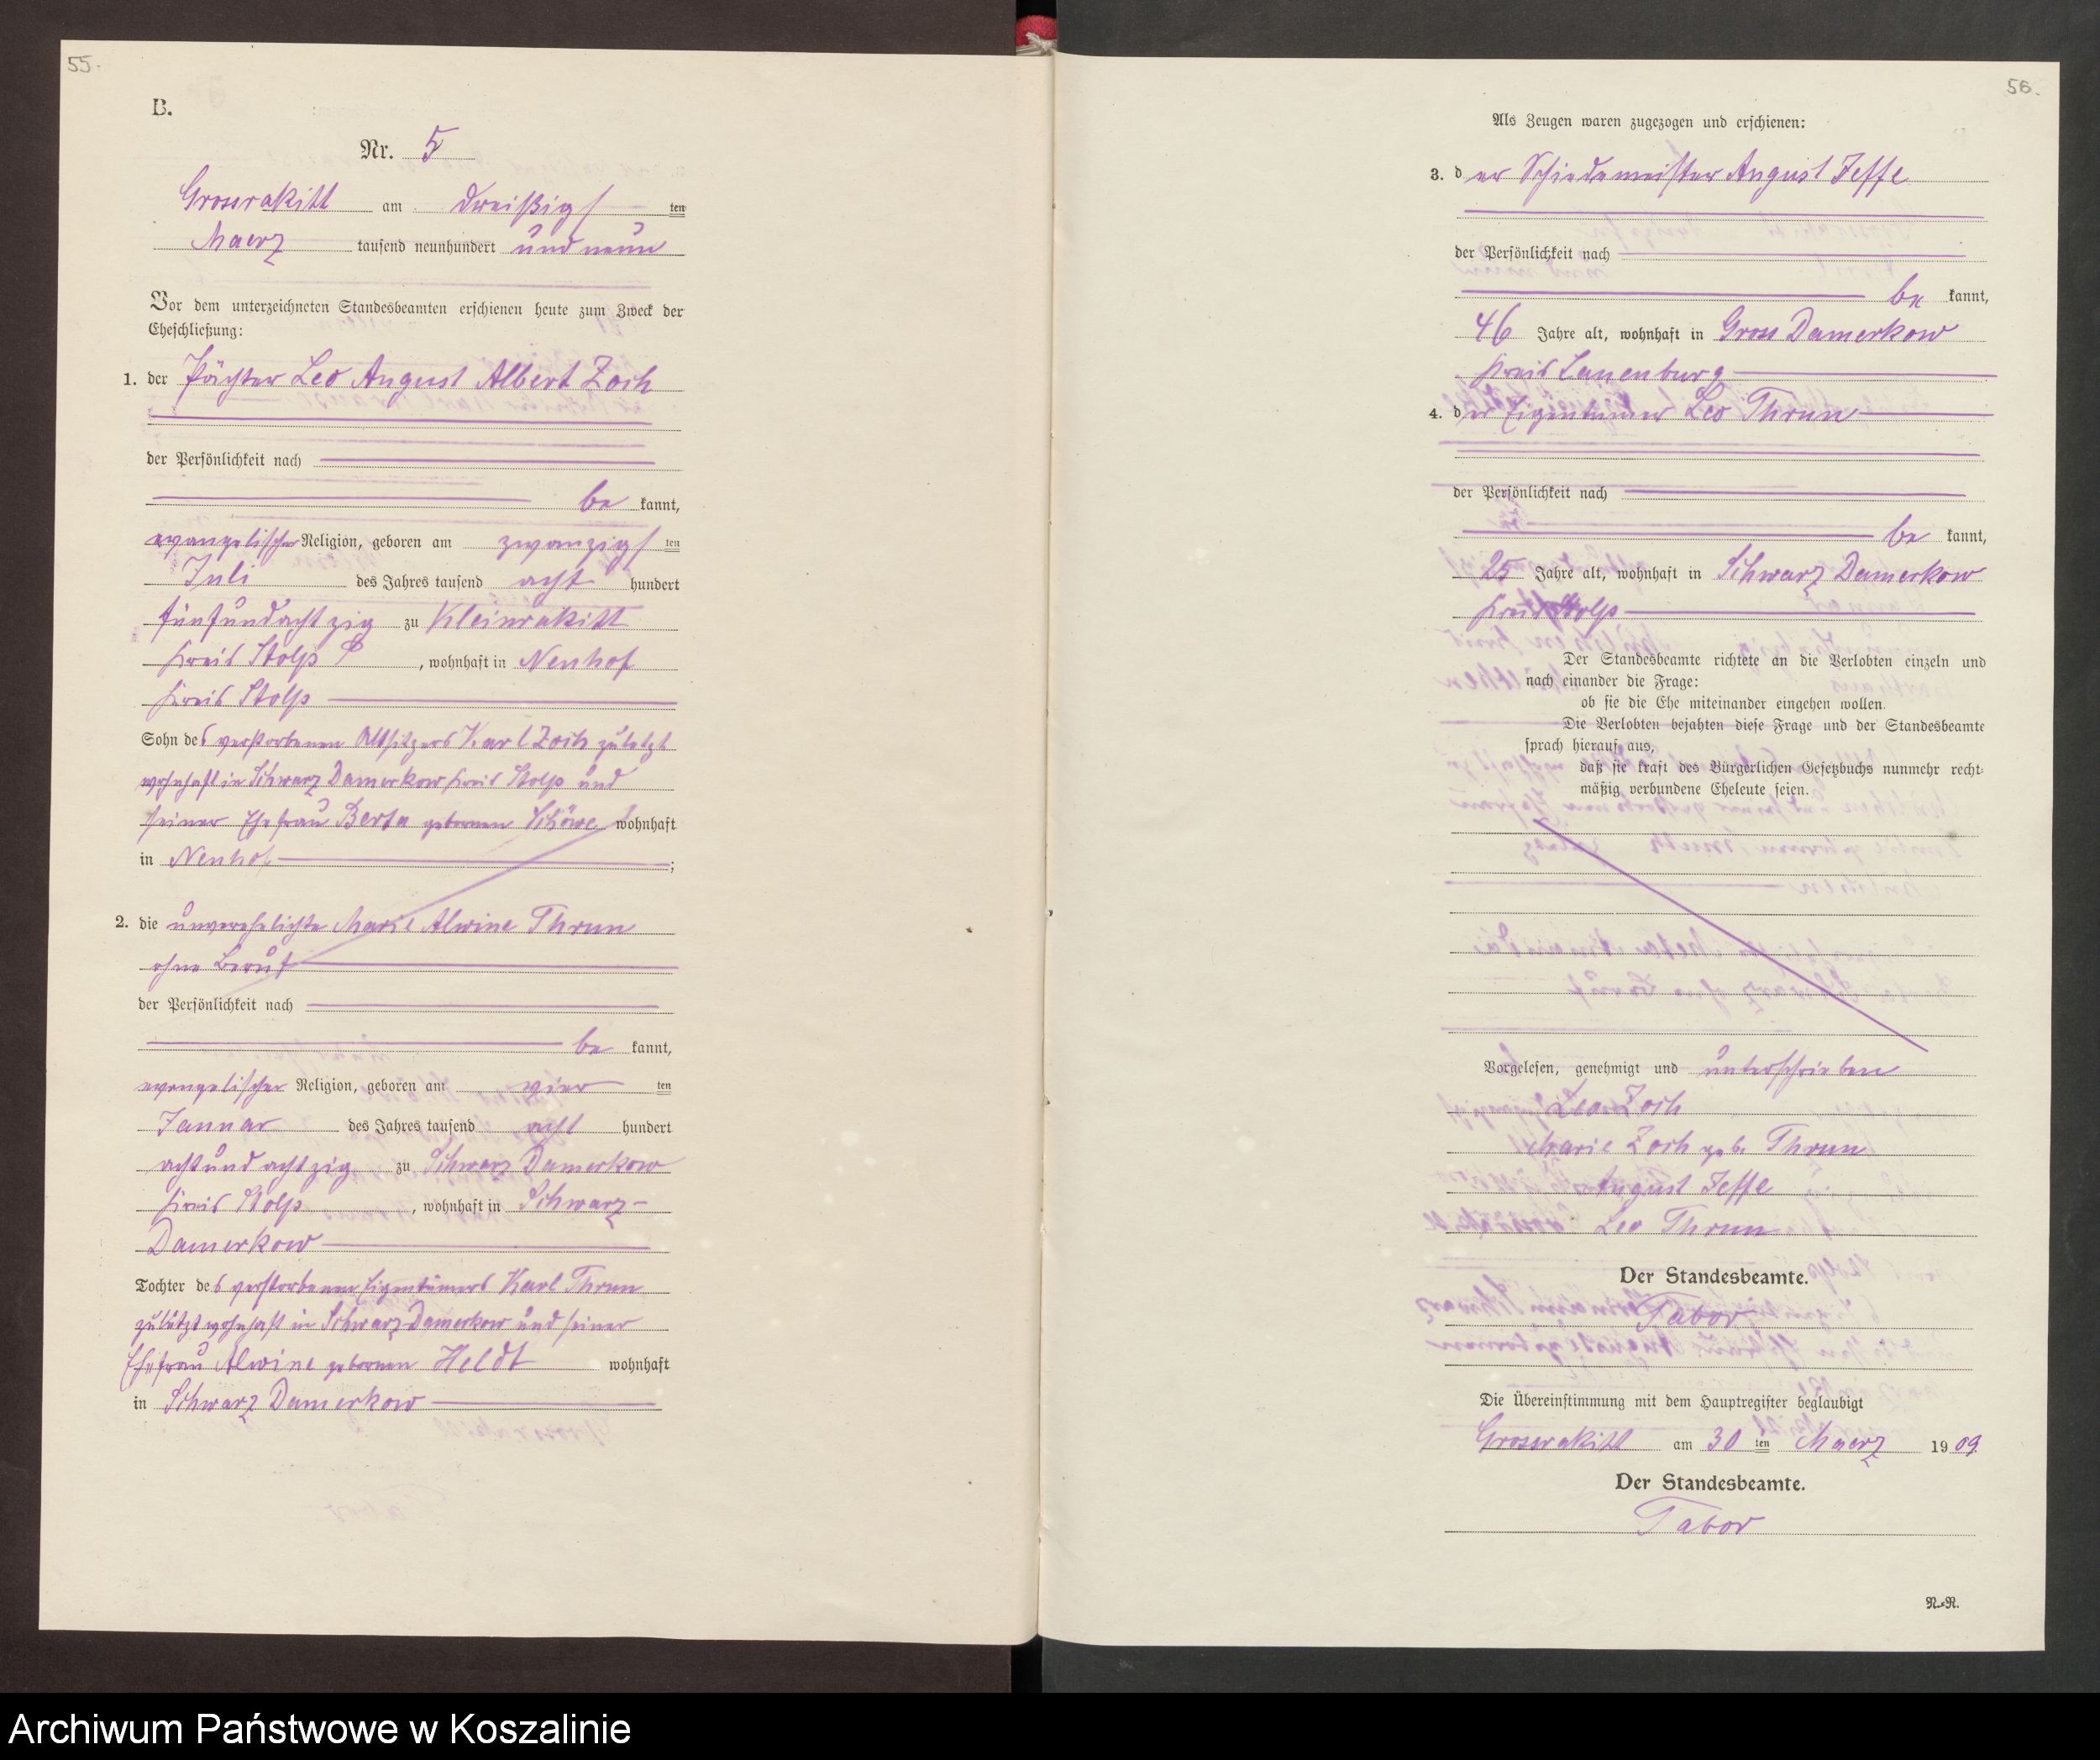 55.
B.
Nr. 5
Grossrakitt am dreißigsten
Maerz tausend neunhundert und neun
Vor dem unterzeichneten Standesbeamten erschienen heute zum Zweck der
Eheschließung:
1. der Pächter Leo August Albert Zoch
der Persönlichkeit nach
be kannt,
evangelischer Religion, geboren am zwanzigsten
Juli des Jahres tausend acht hundert
fünfundachtzig zu Kleinrakitt
Kreis Stolp, wohnhaft in Neuhof
Kreis Stolp
Sohn des verstorbenen Altsitzers Karl Zoch zuletzt
wohnhaft in Schwarz Damerkow Kreis Stolp und
seiner Ehefrau Berta gebornen Schöwe wohnhaft
in Neuhof ;
2. die unverehelichte Marie Alwine Thrun
ohne Beruf
der Persönlichkeit nach
be kannt,
evangelischer Religion, geboren am vier ten
Januar des Jahres tausend acht hundert
achtundachtzig zu Schwarz Damerkow
Kreis Stolp, wohnhaft in Schwarz-
Damerkow
Tochter des verstorbenen Eigentümers Karl Thrun
zuletzt wohnhaft in Schwarz Damerkow und seiner
Ehefrau Alwine gebornen Heldt wohnhaft
in Schwarz Damerkow
56.
Als Zeugen waren zugezogen und erschienen:
3. der August Jeffe
der Persönlichkeit nach
be kannt,
46 Jahre alt, wohnhaft in Gross Damerkow
Kreis Lauenburg
4. der Eigentümer Leo Thrun
der Persönlichkeit nach
be kannt,
25 Jahre alt, wohnhaft in Schwarz Damerkow
Kreis Stolp
Der Standesbeamte richtete an die Verlobten einzeln und
nach einander die Frage:
ob sie die Ehe miteinander eingehen wollen.
Die Verlobten bejahten diese Frage und der Standesbeamte
sprach hierauf aus,
daß sie kraft des Bürgerlichen Gesetzbuchs nunmehr recht-
mäßig verbundene Eheleute seien.
Vorgelesen, genehmigt und unterschrieben
Leo Zoch
Marie Zoch geb. Thrun
August Jeffe
Leo Thrun
Der Standesbeamte.
Tabor
Die Übereinstimmung mit dem Hauptregister beglaubigt
Grossrakitt am 30 ten Maerz 1909.
Der Standesbeamte.
Tabor
N.-R.
Archiwum Państwowe w Koszalinie